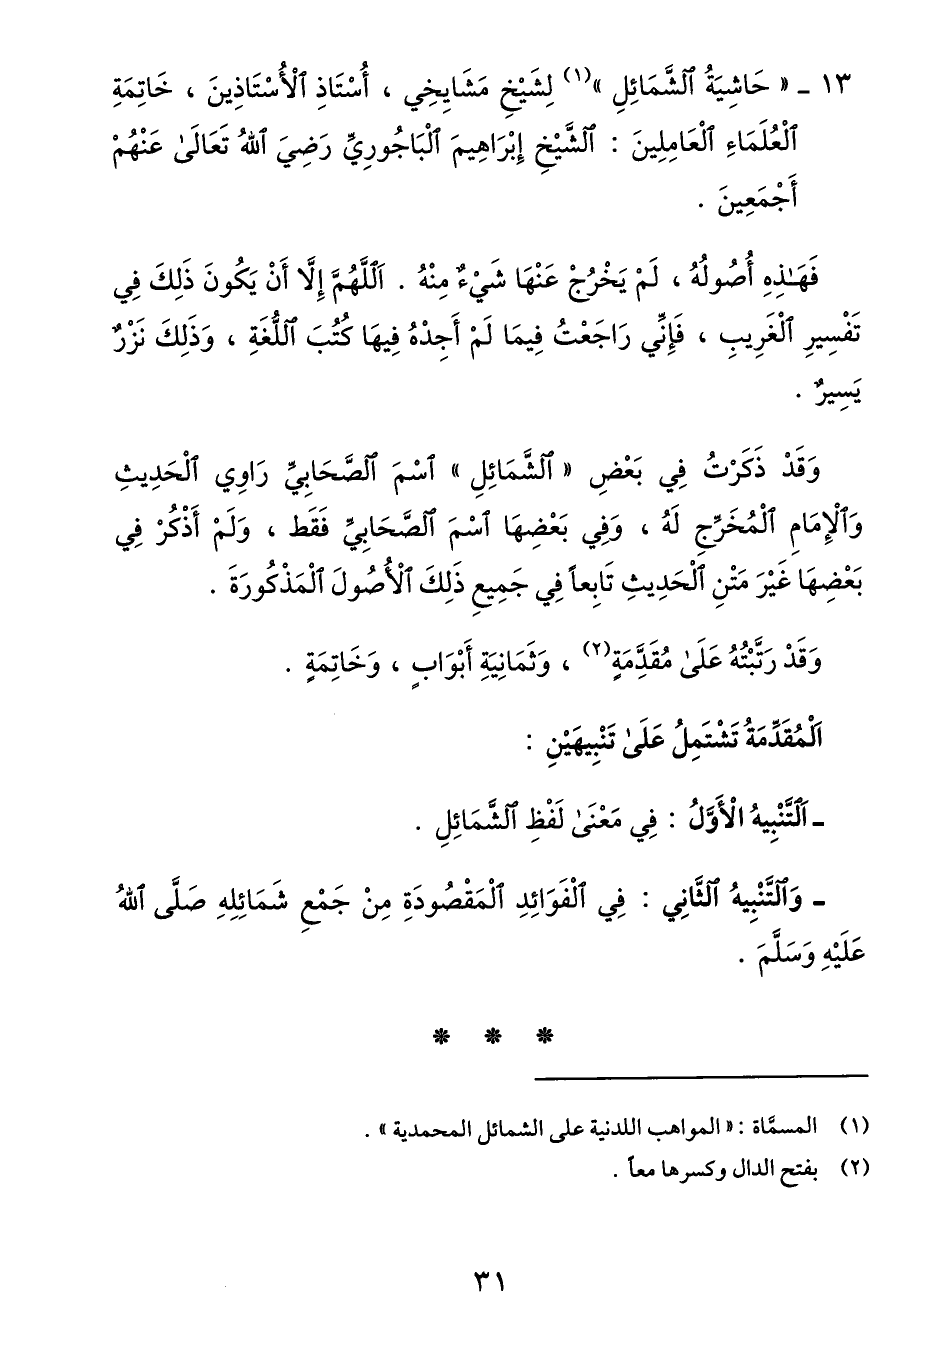 ١٣ ـ « حَاشِيَةُ ٱلشَّمَائِلِ »(١) لِشَيْخِ مَشَايِخِي ، أُسْتَاذِ ٱلْأُسْتَاذِينَ ، خَاتِمَةِ
ٱلْعُلَمَاءِ ٱلْعَامِلِينَ : ٱلشَّيْخِ إِبْرَاهِيمَ ٱلْبَاجُورِيِّ رَضِيَ ٱللهُ تَعَالَىٰ عَنْهُمْ
أَجْمَعِينَ .
فَهَـٰذِهِ أُصُولُهُ ، لَمْ يَخْرُجْ عَنْهَا شَيْءٌ مِنْهُ . اَللَّهُمَّ إِلَّا أَنْ يَكُونَ ذَلِكَ فِي
تَفْسِيرِ ٱلْغَرِيبِ ، فَإِنِّي رَاجَعْتُ فِيمَا لَمْ أَجِدْهُ فِيهَا كُتُبَ ٱللُّغَةِ ، وَذَلِكَ نَزْرٌ
يَسِيرٌ .
وَقَدْ ذَكَرْتُ فِي بَعْضِ « ٱلشَّمَائِلِ » ٱسْمَ ٱلصَّحَابِيِّ رَاوِي ٱلْحَدِيثِ
وَٱلْإِمَامِ ٱلْمُخَرِّجِ لَهُ ، وَفِي بَعْضِهَا ٱسْمَ ٱلصَّحَابِيِّ فَقَط ، وَلَمْ أَذْكُرْ فِي
بَعْضِهَا غَيْرَ مَتْنِ ٱلْحَدِيثِ تَابِعاً فِي جَمِيعِ ذَلِكَ ٱلْأُصُولَ ٱلْمَذْكُورَةَ .
وَقَدْ رَتَّبْتُهُ عَلَىٰ مُقَدَّمَةٍ(٢) ، وَثَمَانِيَةِ أَبْوَابٍ ، وَخَاتِمَةٍ .
اَلْمُقَدِّمَةُ تَشْتَمِلُ عَلَىٰ تَنْبِيهَيْنِ :
ـ اَلتَّنْبِيهُ الْأَوَّلُ : فِي مَعْنَىٰ لَفْظِ ٱلشَّمَائِلِ .
ـ وَٱلتَّنْبِيهُ ٱلثَّانِي : فِي ٱلْفَوَائِدِ ٱلْمَقْصُودَةِ مِنْ جَمْعِ شَمَائِلِهِ صَلَّى ٱللهُ
عَلَيْهِ وَسَلَّمَ .
* * *
(١) المسمَّاة : « المواهب اللدنية على الشمائل المحمدية » .
(٢) بفتح الدال وكسرها معاً .
٣١